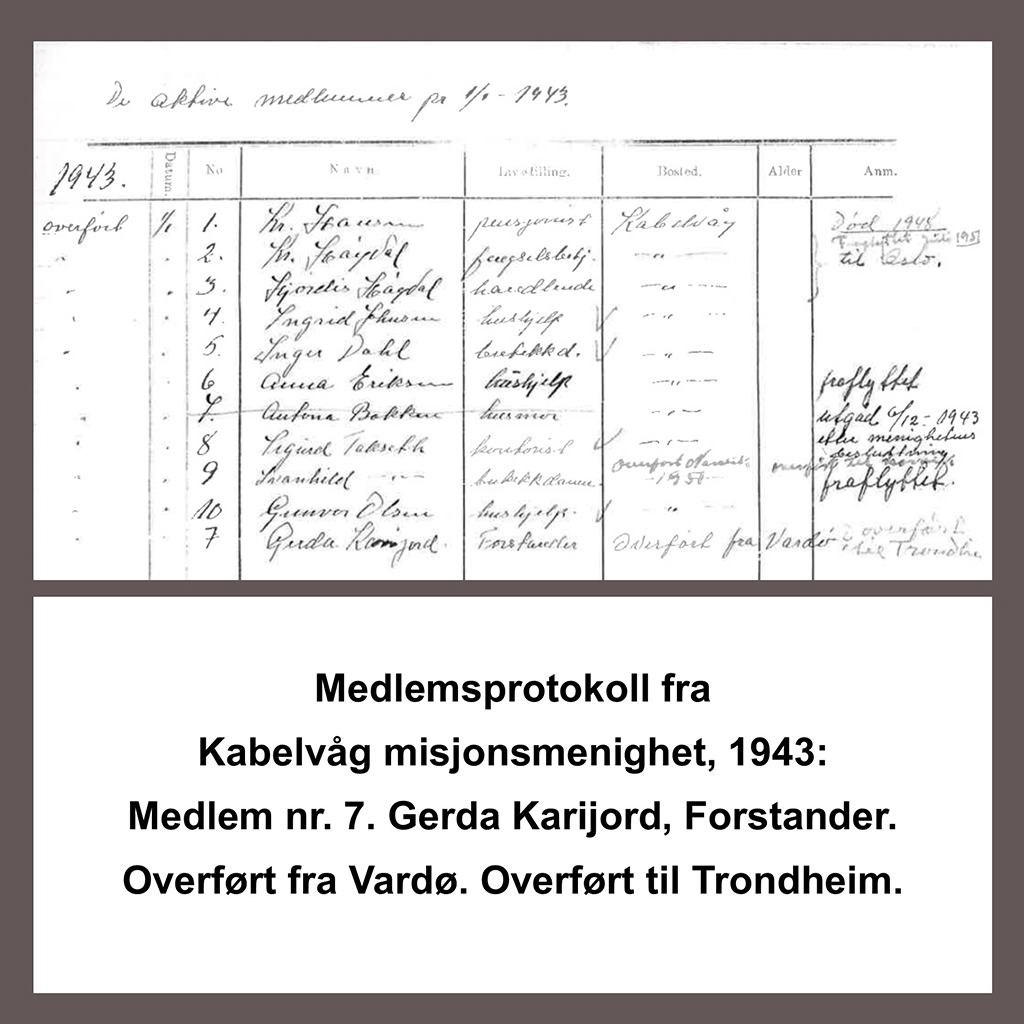 De aktive medlemmer pr 1/1 - 1943.
1943. Datum. No Navn. Livsstilling. Bosted. Alder Anm.
overført 1/1 1. Kr. Hansen pensjonist Kabelvåg Død 1948
" . 2. Kr. Hågdal fengselsbetj. - " - til Oslo.
" . 3. Hjordis Hågdal handlende - " -
" . 4. Ingrid hushjelp - " -
" . 5. Inger Dahl - " -
" . 6 Anna Eriksen hushjelp - " - fraflyttet
" . 7. Antona Bakken husmor - " - utgåd 6/12 - 1943
etter menighetens
beslutning
" . 8 Sigurd Takseth kontorist - " -
" . 9 Svanhild - " - overført fraflyttet.
" . 10 Gunvor Olsen hushjelp. "
" . 7 Gerda Karijord. Forstander Overført fra Vardø overført
til Trondh
Medlemsprotokoll fra
Kabelvåg misjonsmenighet, 1943:
Medlem nr. 7. Gerda Karijord, Forstander.
Overført fra Vardø. Overført til Trondheim.